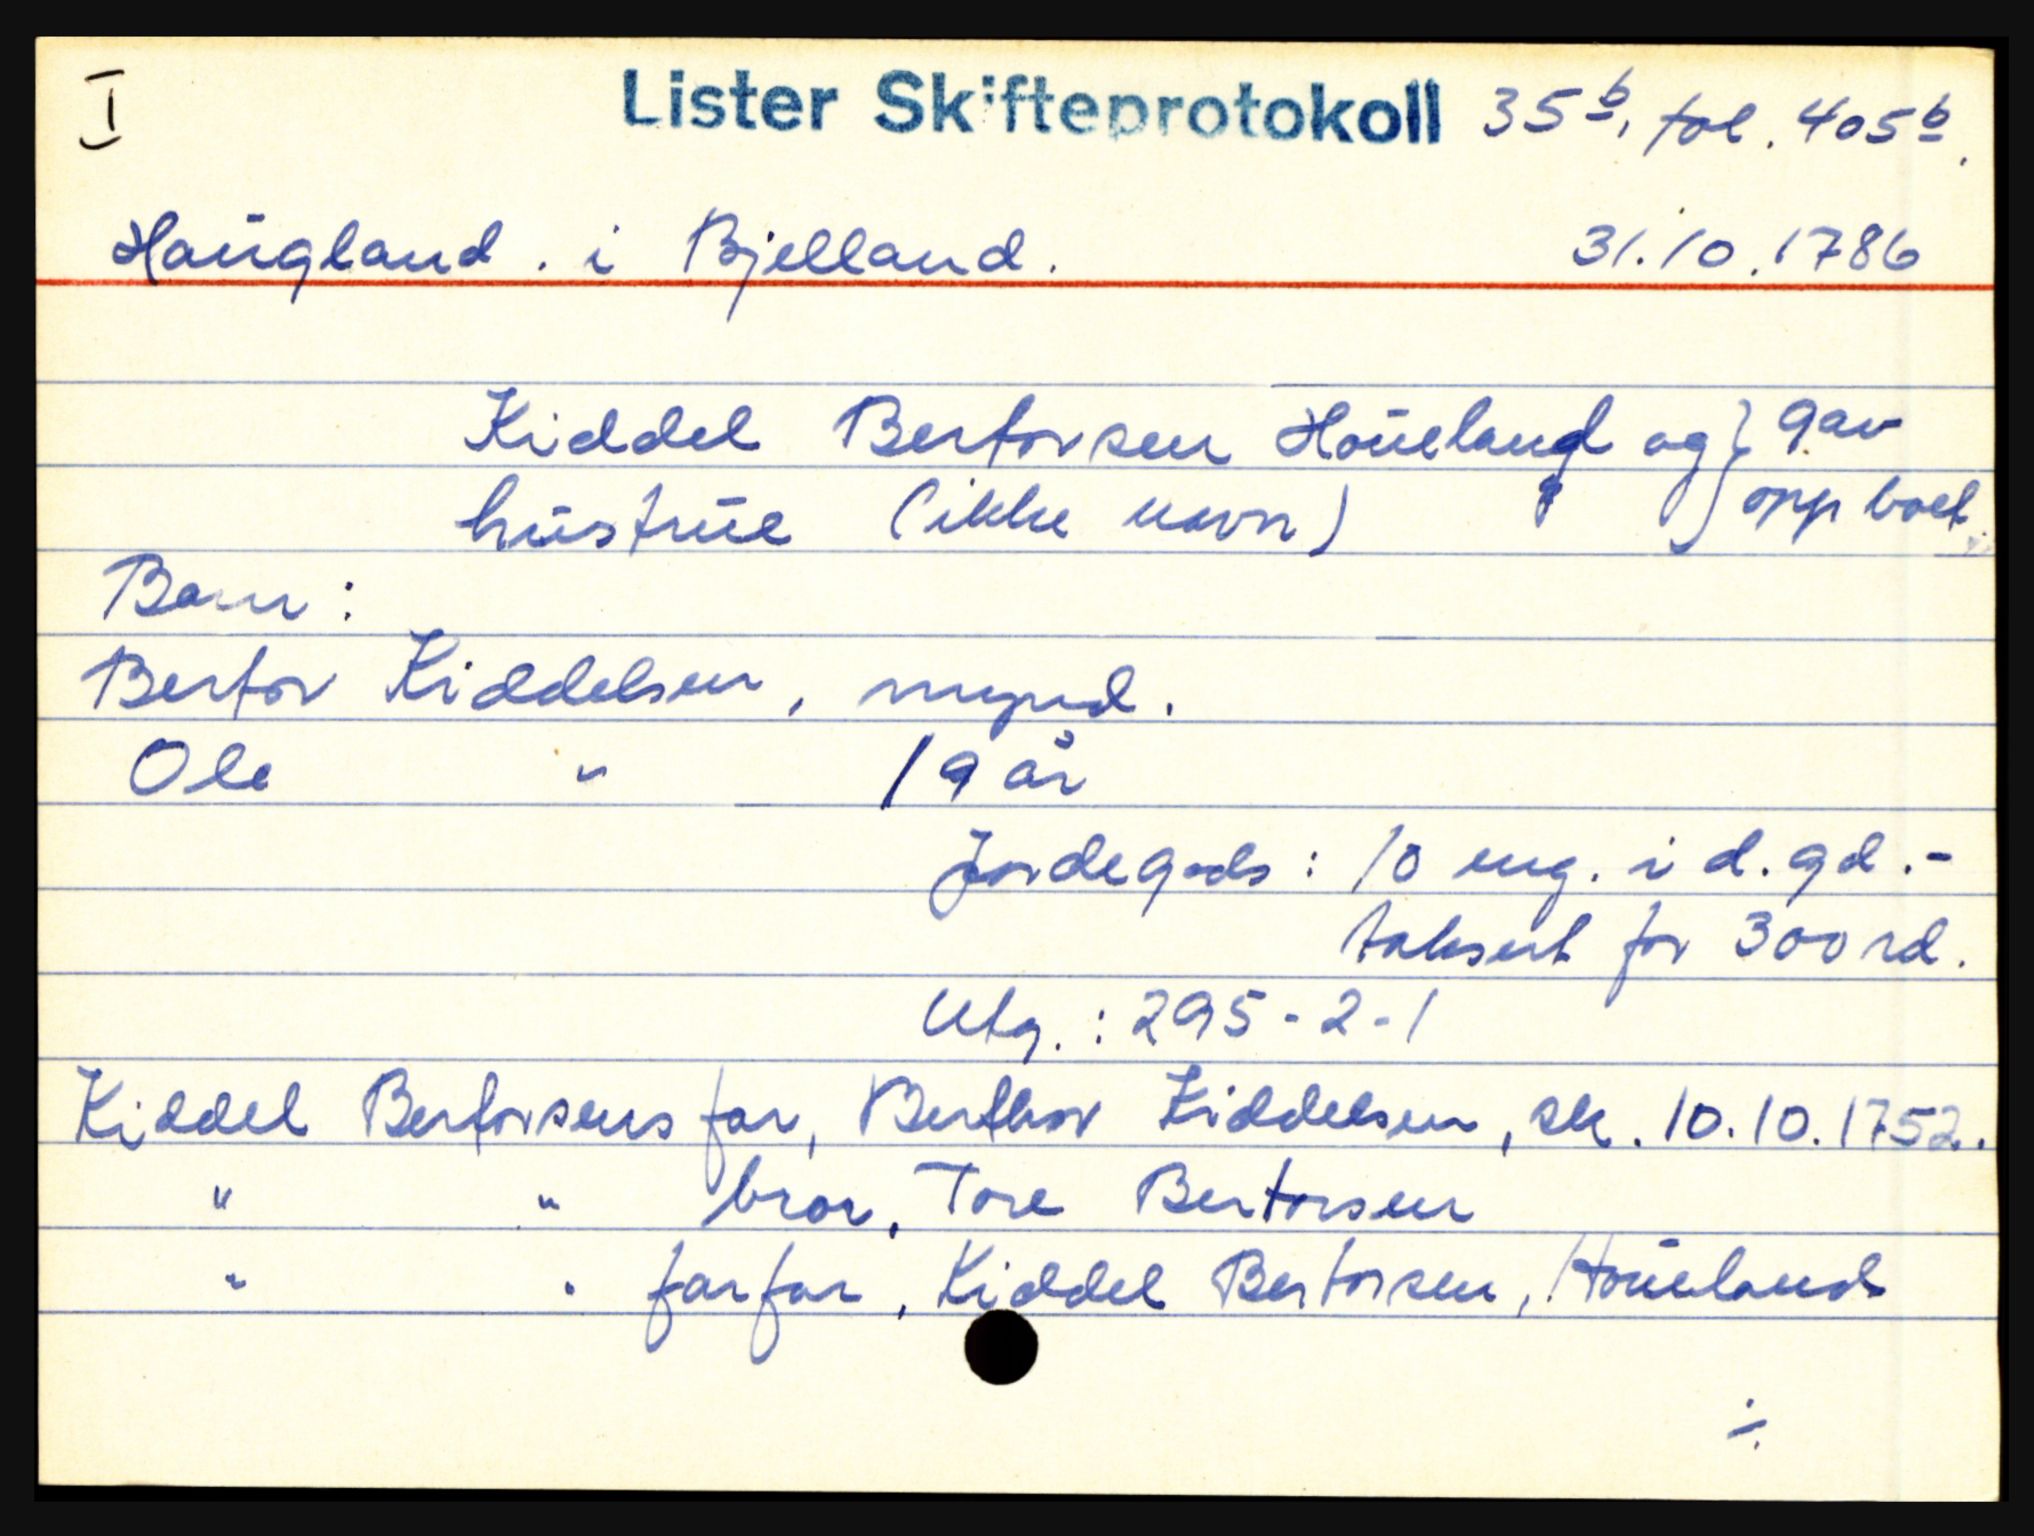 I Lister Skifteprotokoll 35b, fol. 405b.
Haugland . i Bjelland. 31.10.1786
Kiddel Bertorsen Houeland og } gav
hustrue (ikke navn) } opp boet.
Barn:
Bertor Kiddelsen, mynd.
Ole " 19 år
Jordegods: 10 eng. i d. gd. -
taksert for 300 rd.
Utg.: 295-2-1
Kiddel Bertorsens far, Berthor Kiddelsen, sk. 10.10.1752.
" " bror, Tore Bertorsen
" " farfar, Kiddel Bertorsen, Houeland
./.